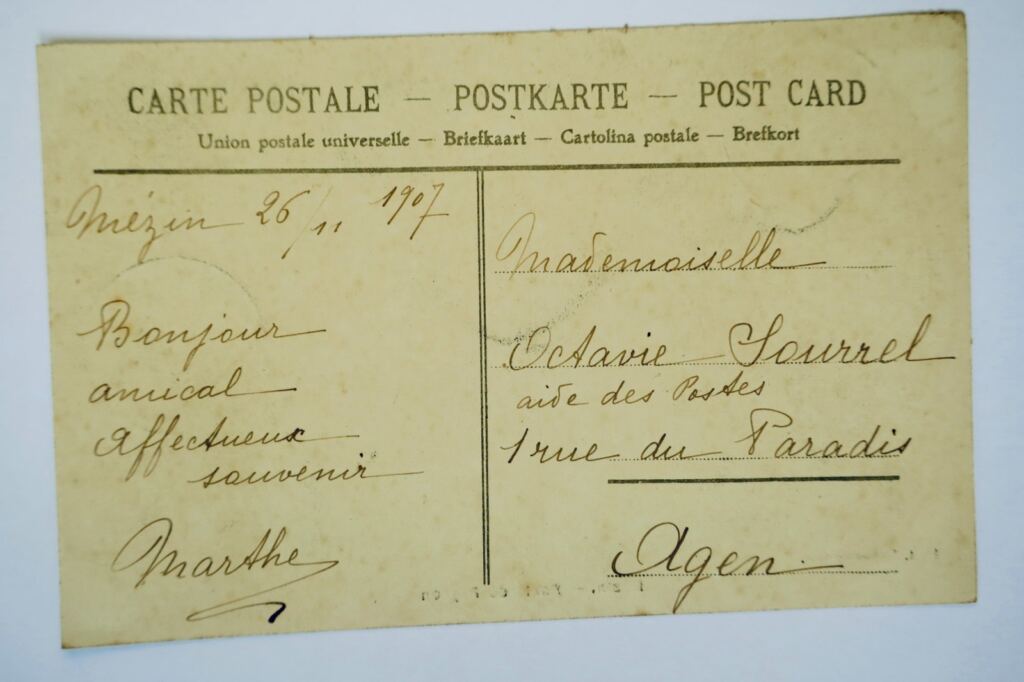 CARTE POSTALE — POSTKARTE — POST CARD
Union postale universelle — Briefkaart — Cartolina postale — Brefkort
Mézin 26/11 1907
Bonjour
amical
Affectueux
souvenir
Marthe
Mademoiselle
Octavie Sourrel
aide des Postes
1 rue du Paradis
Agen